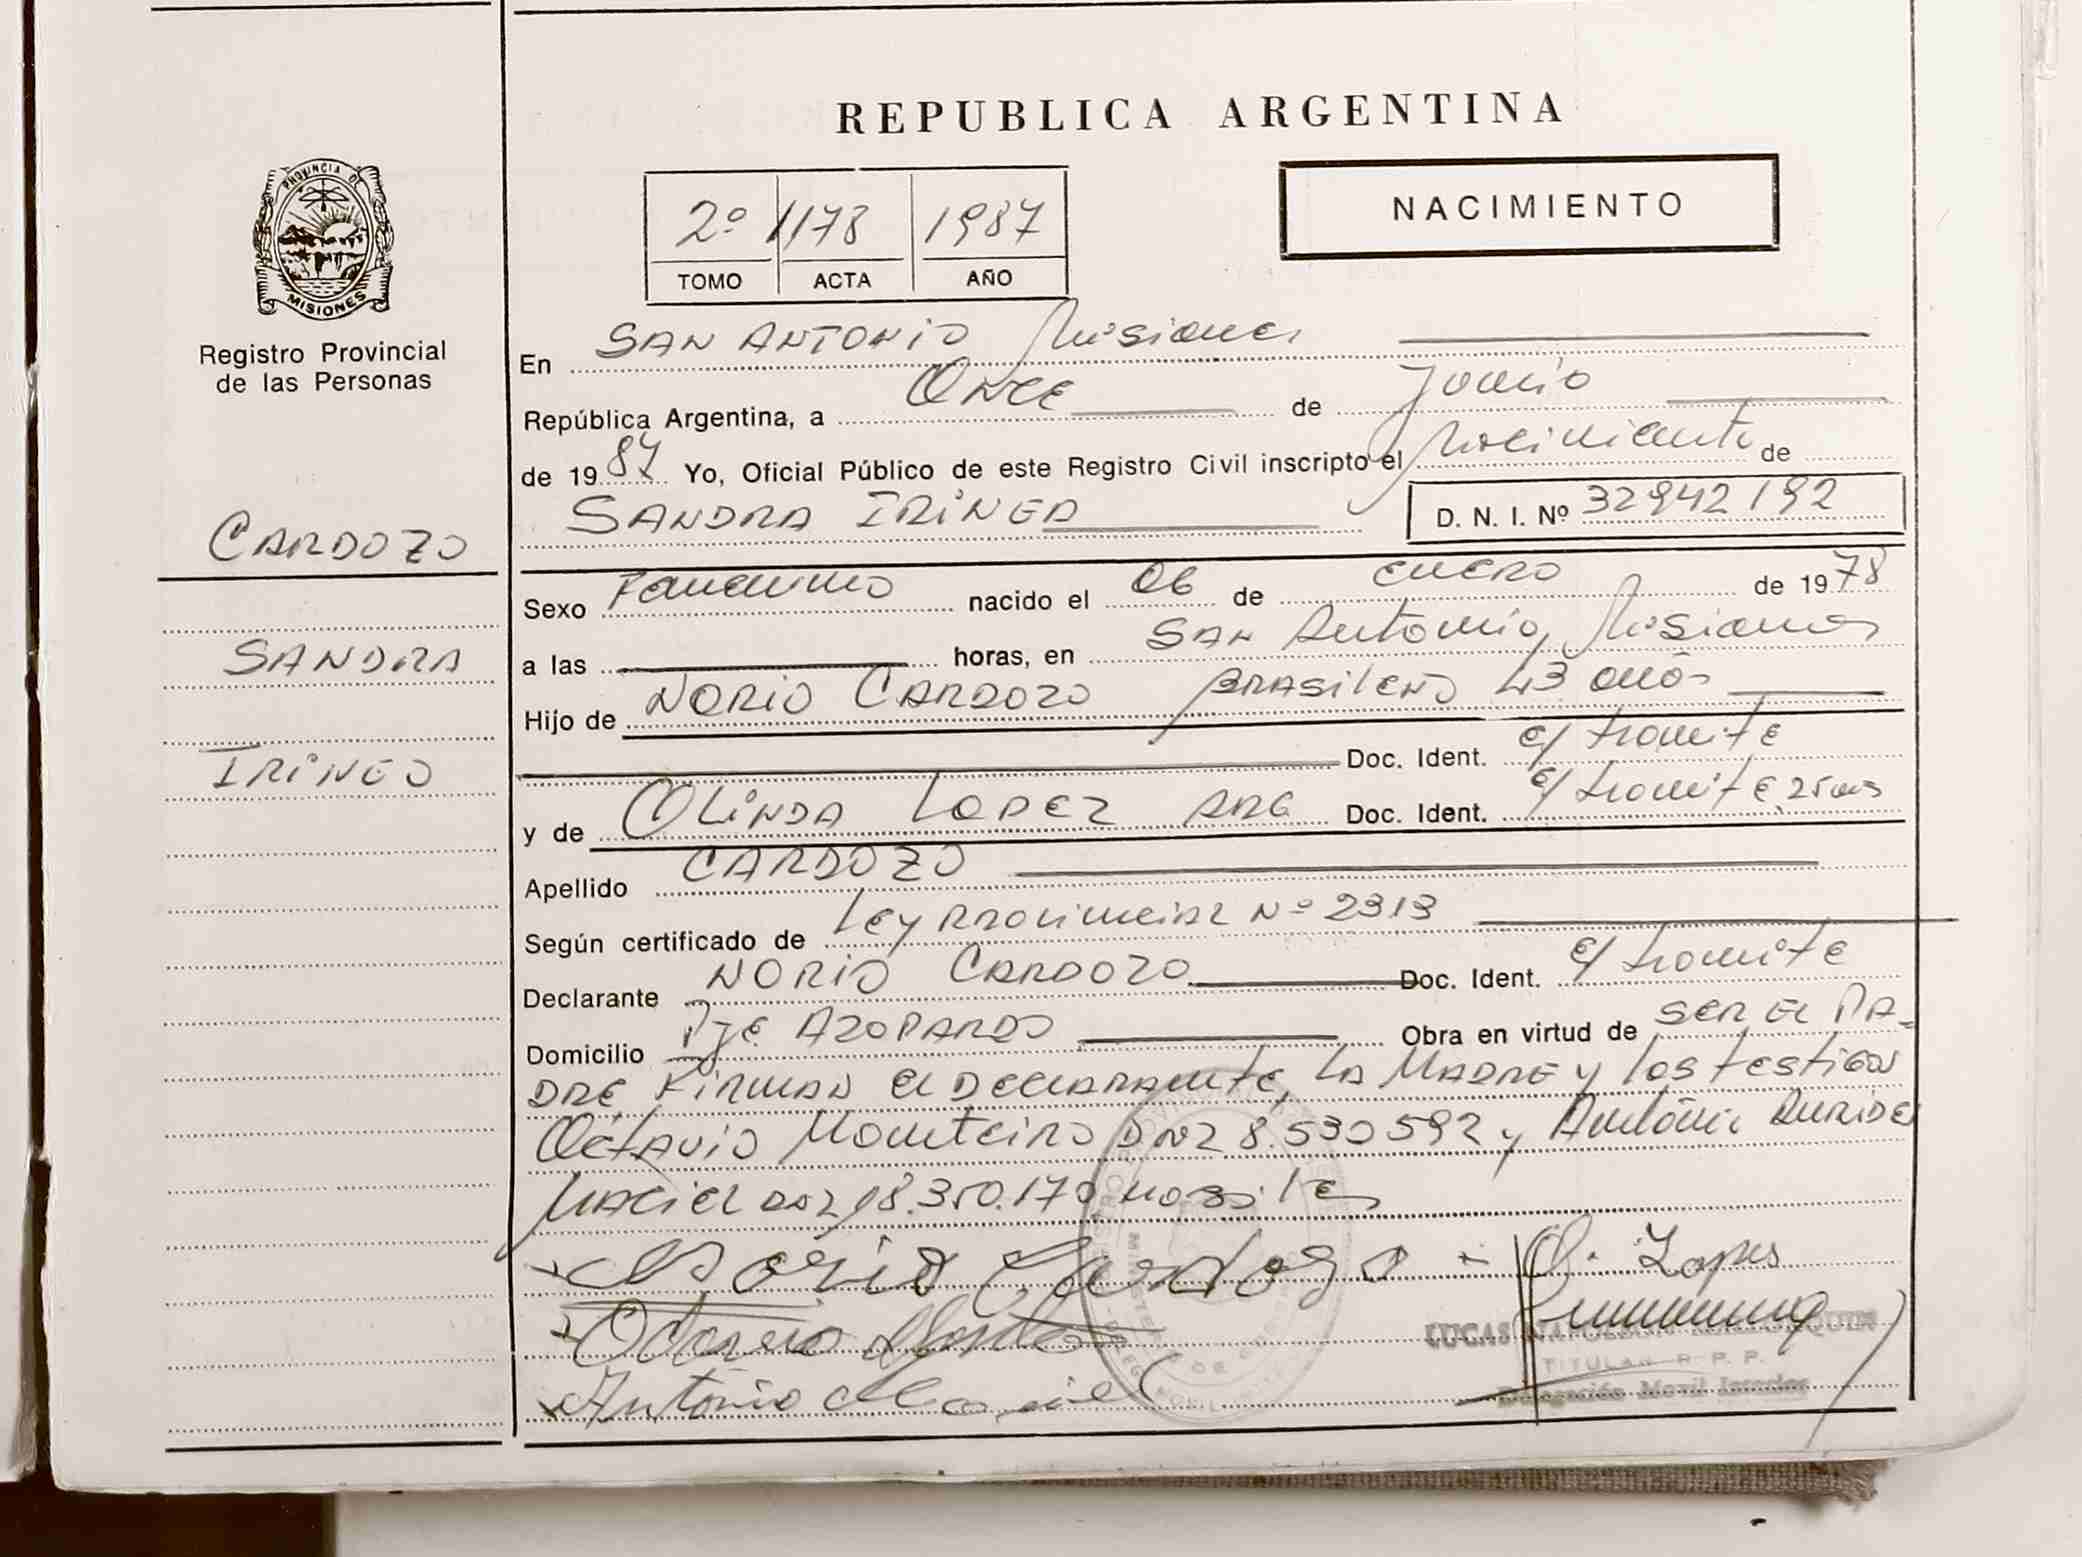 REPUBLICA ARGENTINA
NACIMIENTO
2º 1178 1987
TOMO ACTA AÑO
PROVINCIA DE
MISIONES
Registro Provincial
de las Personas
CARDOZO
SANDRA
IRINEO
En SAN ANTONIO Misiones
República Argentina, a ONCE de Junio
de 1987 Yo, Oficial Público de este Registro Civil inscripto el Nacimiento de
SANDRA IRINEA D. N. I. Nº 32942192
Sexo Femenino nacido el 06 de enero de 1978
a las horas, en SAN Antonio, Misiones
Hijo de NORIO CARDOZO BRASILEÑO 43 años
Doc. Ident. e/ tramite
y de OLINDA LOPEZ ARG Doc. Ident. e/ tramite 25 años
Apellido CARDOZO
Según certificado de Ley PROVINCIAL Nº 2313
Declarante NORIO CARDOZO Doc. Ident. e/ tramite
Domicilio Pje AZOPARDO Obra en virtud de SER EL PA-
DRE, FIRMAN El DECLARANTE, LA MADRE y los testigos
OCTAVIO Monteiro DNI 8.530592 y Antonio
MACIEL DNI 18.350.170
Nório Cardozo - O. Lopes
Otavio
LUCAS
TITULAR R. P. P.
António Maciel